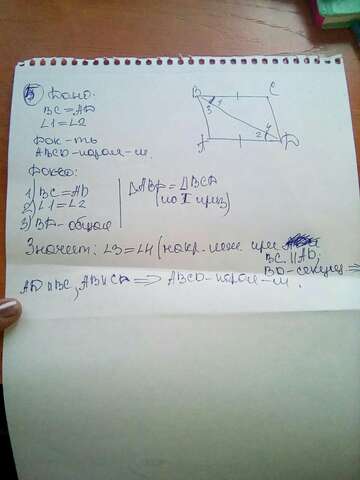 5 Дано:
BC=AD
∠1=∠2
Док-ть
ABCD-парал-м.
Док-во:
1) BC=AD
2) ∠1=∠2
3) BD-общая
△ABD=△BCD
(по I приз)
Значит: ∠3=∠4 (накр. леж. при
BC || AD,
BD-секущая ⇒
AD || BC, AB || CD ⇒ ABCD-парал-м.
B C
3 1 4
2
A D